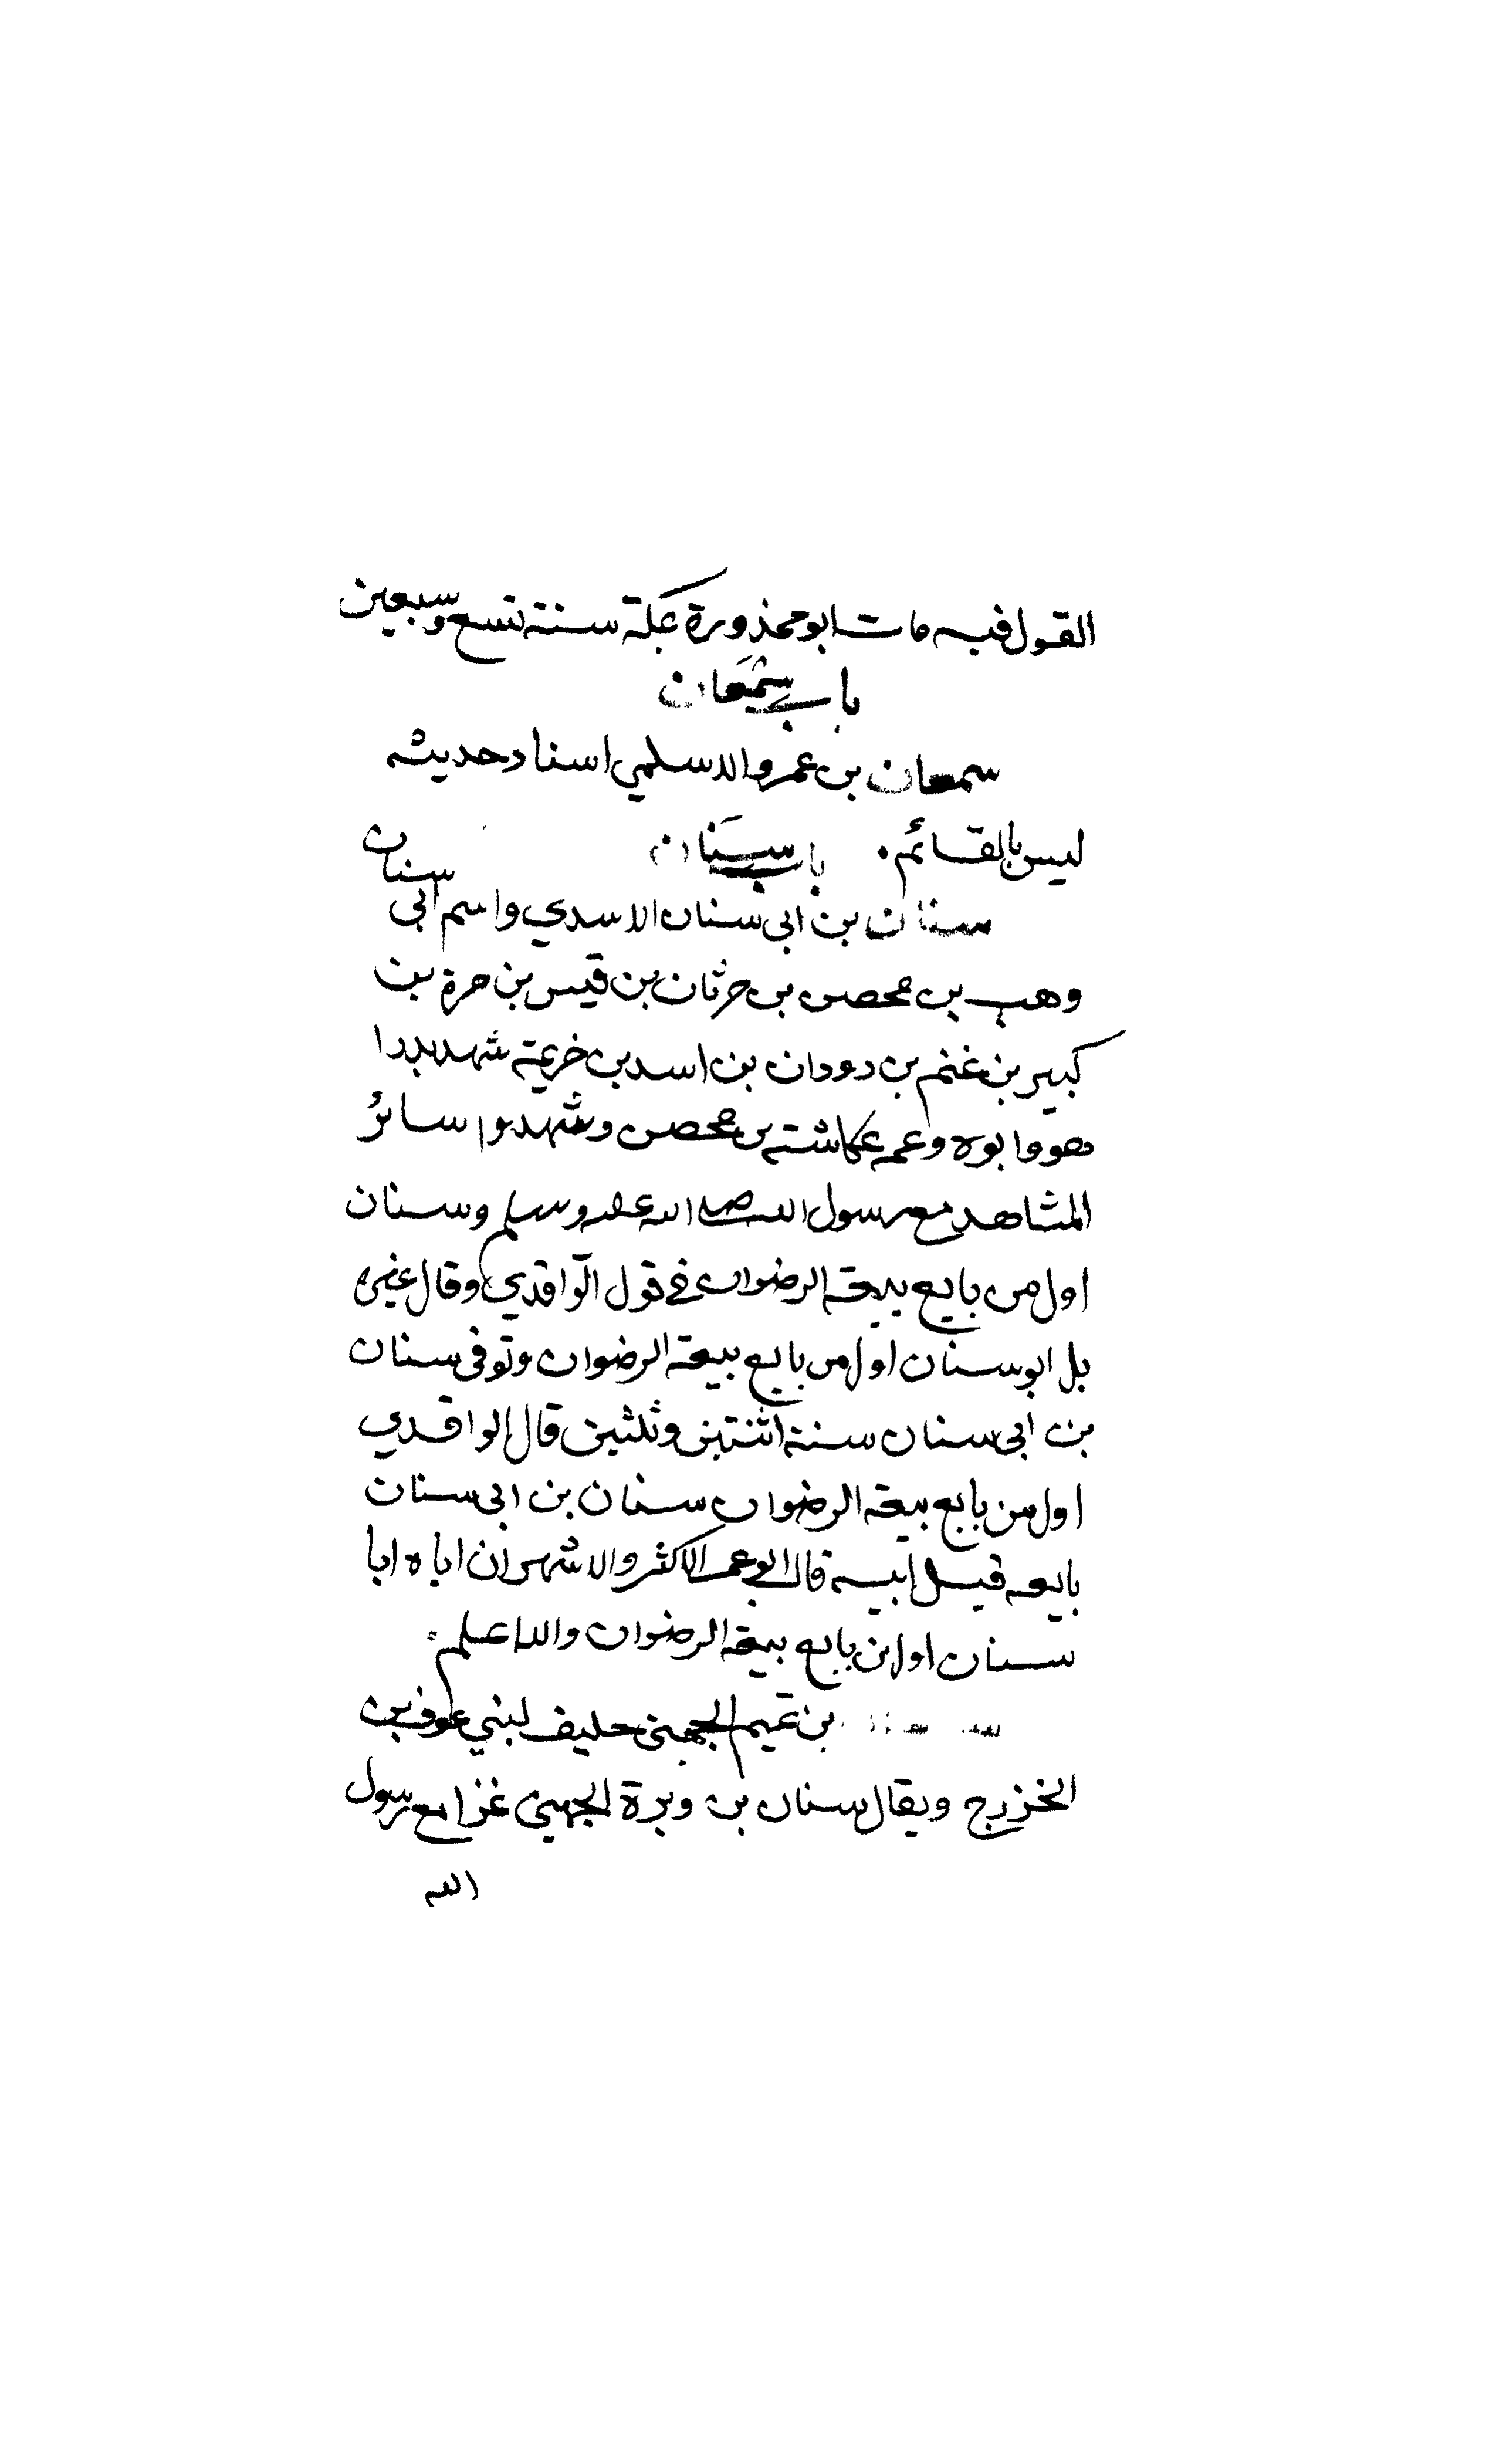 القول فيه مات ابو محذورة بمكة سنة تسع وسبعين
باب سمعان
سمعان بن عمرو الاسلمي اسناد حديثه
ليس بالقائم . باب سنان
سنان بن ابى سنان الاسدي واسم ابى سنان
وهب بن محصن بن حرثان بن قيس بن مرة بن
كبير بن غنم بن دودان بن اسد بن خزيمة شهد بدرا
هو وابوه وعمه عكاشة بن محصن وشهدوا سائر
المشاهد مع رسول الله صلى الله عليه وسلم وسنان
اول من بايع بيعة الرضوان في قول الواقدي وقال غيره
بل ابو سنان اول من بايع بيعة الرضوان وتوفى سنان
بن ابى سنان سنة اثنتين وثلثين قال الواقدي
اول من بايع بيعة الرضوان سنان بن ابى سنان
بايعه قبل ابيه قال ابو عمر الاكثر والاشهر ان اباه ابا
سنان اول من بايع بيعة الرضوان والله اعلم .
بن تميم الجهنى حليف لبني عوف بن
الخزرج ويقال سنان بن وبرة الجهنى غزا مع رسول
الله